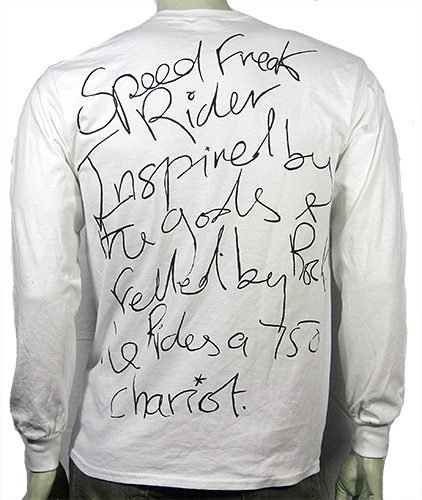 Speed Freak
Rider
Inspired by
the gods &
fuelled by Rock
he Rides a 750
chariot.